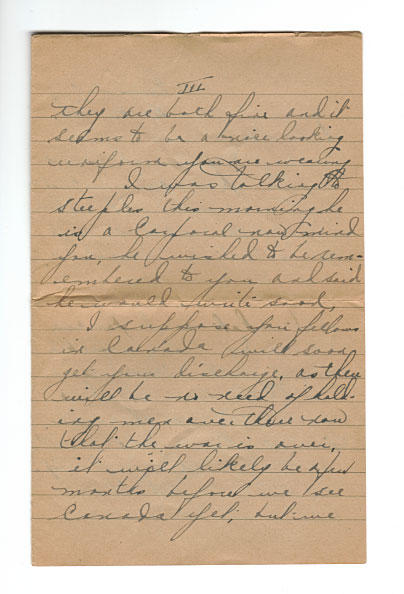 III
they are both fine and it
seems to be a nice looking
uniform you are wearing
I was talking to
steeples this morning he
is a Corporal now mind
you, he wished to be rem-
embered to you and said
he would write soon,
I suppose you fellows
in Canada will soon
get your discharge, as there
will be no need of hold-
ing men over there now
that the war is over,
it will likely be a few
months before we see
Canada yet, but we